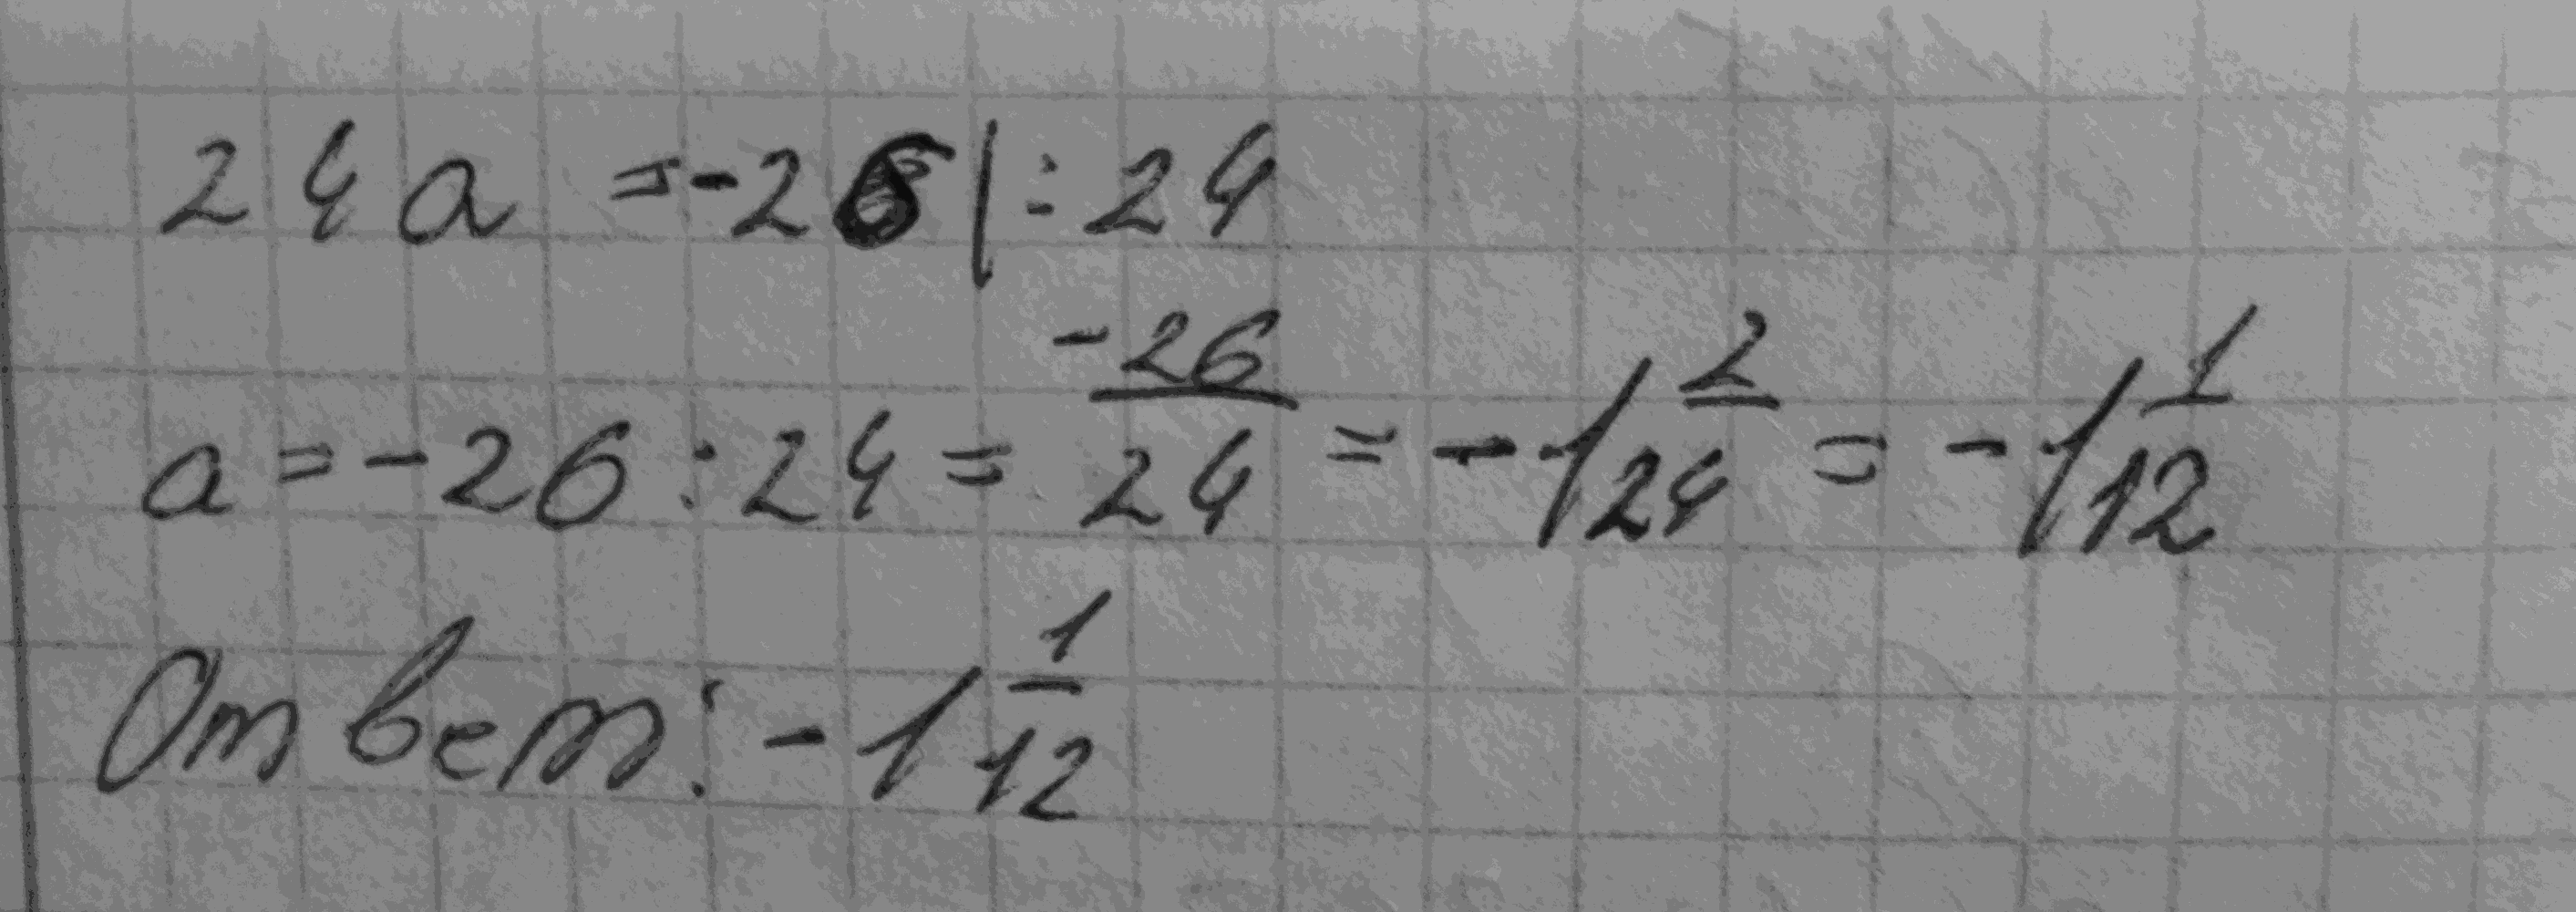 24a = -26 | : 24
a = -26 : 24 = -26/24 = -1 2/24 = -1 1/12
Ответ: -1 1/12